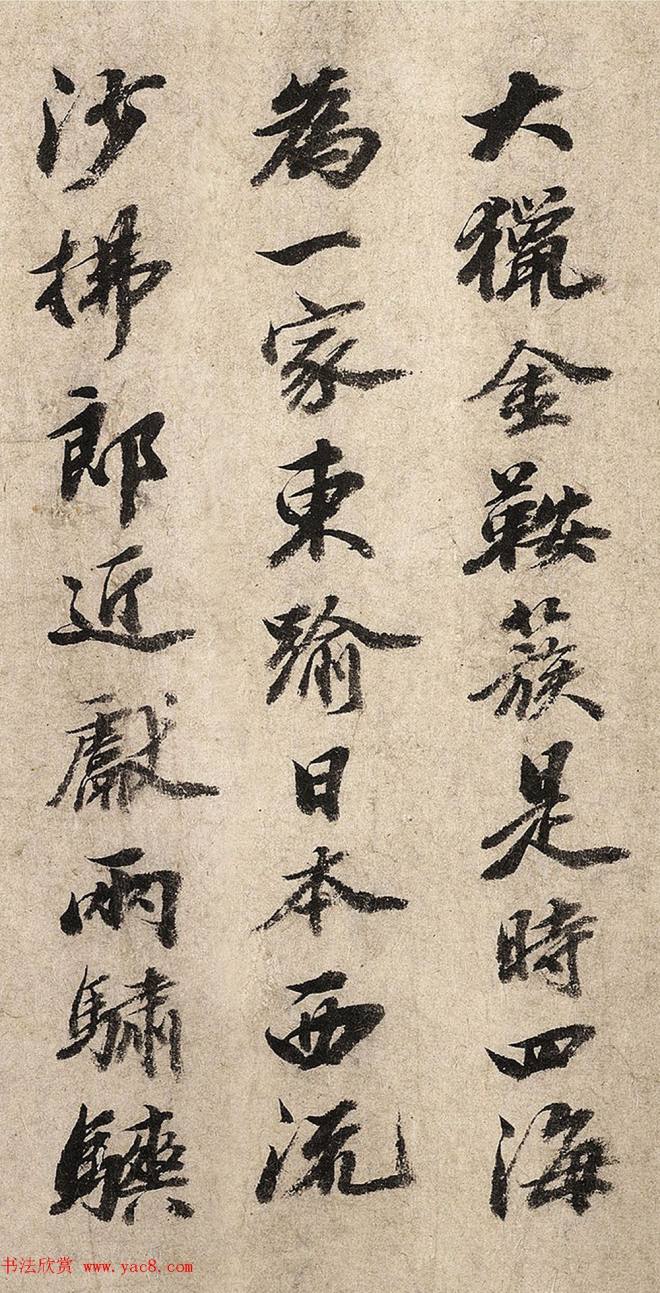 大獵金鞍簇是時四海
為一家東踰日本西流
沙拂郎近獻兩驌驦
书法欣赏 www.yac8.com